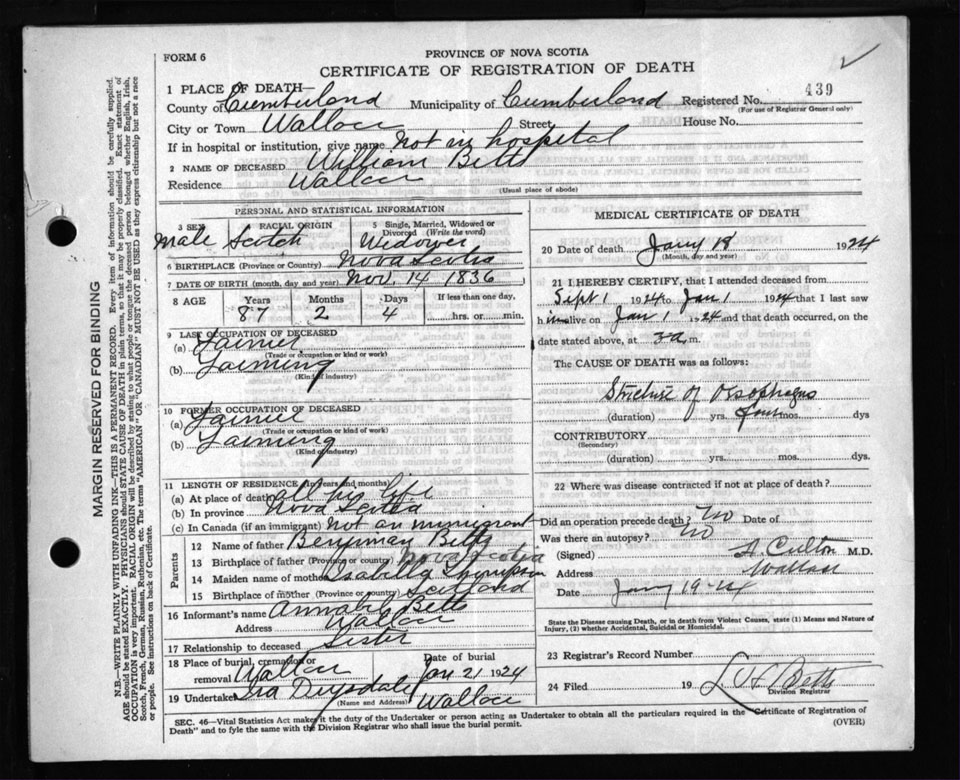 FORM 6
PROVINCE OF NOVA SCOTIA
CERTIFICATE OF REGISTRATION OF DEATH
1 PLACE OF DEATH—
439
County of Cumberland Municipality of Cumberland Registered No.
(For use of Registrar General only)
City or Town Wallace Street House No.
If in hospital or institution, give name Not in hospital
2 NAME OF DECEASED William Betts
Residence Wallace
(Usual place of abode)
PERSONAL AND STATISTICAL INFORMATION
3 SEX RACIAL ORIGIN 5 Single, Married, Widowed or Divorced (Write the word)
Male Scotch Widower
6 BIRTHPLACE (Province or Country) Nova Scotia
7 DATE OF BIRTH (month, day and year) Nov. 14 1836
8 AGE Years Months Days If less than one day,
87 2 4 hrs. or min.
9 LAST OCCUPATION OF DECEASED
(a) Farmer
(Trade or occupation or kind or work)
(b) Farming
(Kind of industry)
10 FORMER OCCUPATION OF DECEASED
(a) Farmer
(Trade or occupation or kind of work)
(b) Farming
(Kind of industry)
11 LENGTH OF RESIDENCE (in years and months)
(a) At place of death all his life
(b) In province Nova Scotia
(c) In Canada (if an immigrant) Not an immigrant
Parents
12 Name of father Benjamin Betts
13 Birthplace of father (Province or country) Nova Scotia
14 Maiden name of mother Isabella Thompson
15 Birthplace of mother (Province or country) Scotland
16 Informant's name Betts
Address Wallace
17 Relationship to deceased Sister
18 Place of burial, cremation or removal Wallace
Date of burial
Jan 21 1924
19 Undertaker Ira Drysdale Wallace
(Name and Address)
MEDICAL CERTIFICATE OF DEATH
20 Date of death Jany 18 1924
(Month, day and year)
21 I HEREBY CERTIFY, that I attended deceased from
Sept 1 1924 to Jan 1 1924 that I last saw
him alive on Jan 1 1924 and that death occurred, on the
date stated above, at 3 a m.
The CAUSE OF DEATH was as follows:
Stricture of Oesophagus
(duration) yrs. four mos. dys
CONTRIBUTORY
(Secondary)
(duration) yrs. mos. dys.
22 Where was disease contracted if not at place of death?
Did an operation precede death? No Date of
Was there an autopsy? No
(Signed) M.D.
Address Wallace
Date Jany 19-24
State the Disease causing Death, or in death from Violent Causes, state (1) Means and Nature of
Injury, (2) whether Accidental, Suicidal or Homicidal.
23 Registrar's Record Number
24 Filed 19 Betts
Division Registrar
SEC. 46—Vital Statistics Act makes it the duty of the Undertaker or person acting as Undertaker to obtain all the particulars required in the "Certificate of Registration of
Death" and to fyle the same with the Division Registrar who shall issue the burial permit.
(OVER)
MARGIN RESERVED FOR BINDING
N.B.—WRITE PLAINLY WITH UNFADING INK—THIS IS A PERMANENT RECORD. Every item of information should be carefully supplied.
AGE should be stated EXACTLY. PHYSICIANS should STATE CAUSE OF DEATH in plain terms, so that it may be properly classified. Exact statement of
OCCUPATION is very important. RACIAL ORIGIN will be described by stating to what people or tongue the deceased person belonged whether English, Irish,
Scotch, French, German, Russian, Ruthenian, etc. The terms "AMERICAN" OR "CANADIAN" MUST NOT BE USED as they express citizenship but not a race
or people. See instructions on back of Certificate.